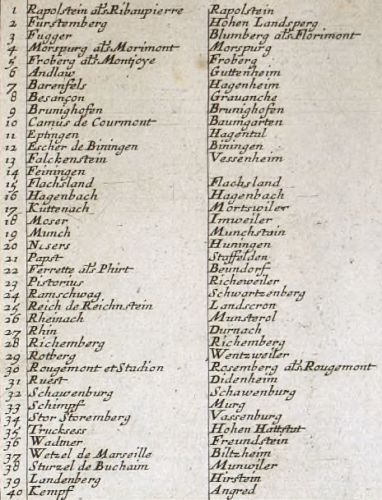 1 Rapolstein als Ribaupierre Rapolstein
2 Fürstemberg Hohen Landsperg
3 Fugger Blumberg als Florimont
4 Morspurg als Morimont Morspurg
5 Froberg als Montjoye Froberg
6 Andlaw Guttenheim
7 Barenfels Hagenheim
8 Besançon Grauanche
9 Brunighofen Brunighofen
10 Camus de Courmont Baumgarten
11 Eptingen Hagental
12 Escher de Biningen Biningen
13 Falckenstein Vessenheim
14 Feiningen
15 Flachsland Flachsland
16 Hagenbach Hagenbach
17 Küttenach Mörtswiler
18 Moser Imweiler
19 Munch Munchstain
20 N.sers Huningen
21 Papst Staffelden
22 Ferrette als Phirt Beundorf
23 Pistorius Richeweiler
24 Ramschwag Schwartzenberg
25 Reich de Reichnstein Landscron
26 Rheinach Munsterol
27 Rhin Durnach
28 Richemberg Richemberg
29 Rotberg Wentzweiler
30 Rougemont et Stadion Rosemberg als Rougemont
31 Ruest Didenheim
32 Schawenburg Schawenburg
33 Schimpf Murg
34 Stor Storemberg Vassenburg
35 Trucksess Hohen Hattstat
36 Wadtner Freundstein
37 Wetzel de Marseille Biltzheim
38 Sturzel de Buchaim Munwiler
39 Landenberg Hirstein
40 Kempf Angred